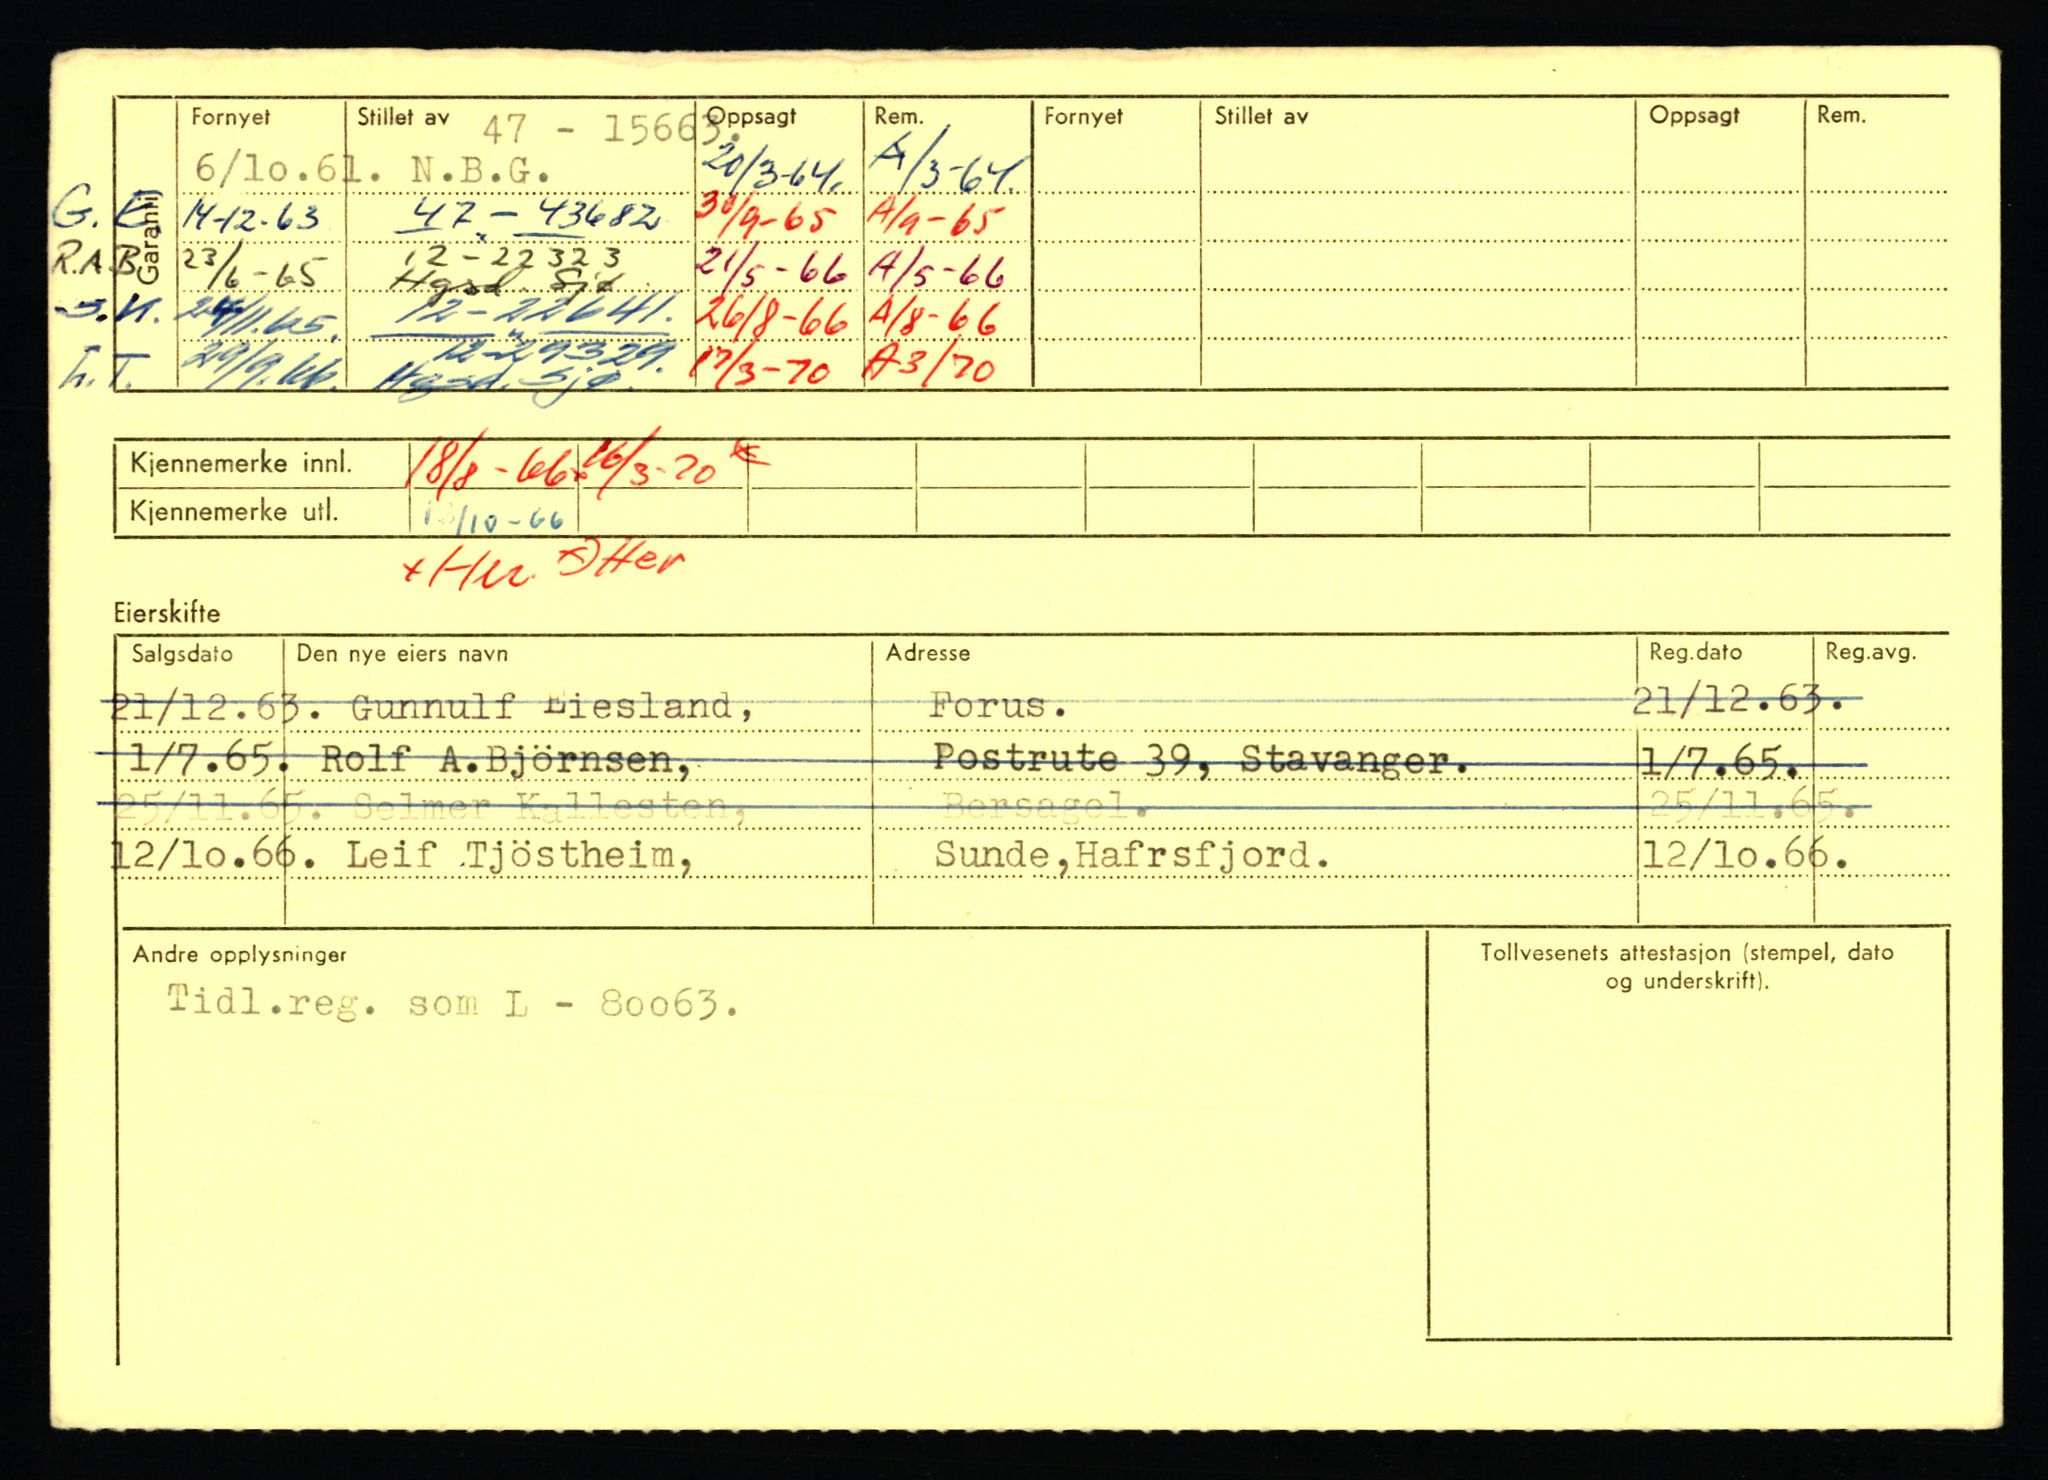 Garanti
Fornyet Stillet av Oppsagt Rem. Fornyet Stillet av Oppsagt Rem.
47 - 15663.
6/10.61. N.B.G. 20/3-64. A/3-64.
G. E 14-12-63 47 - 43682 30/9-65 A/9-65
R.A.B. 23/6-65 12-22323 21/5-66 A/5-66
Hgsd. Sjø.
S.K. 12-22641. 26/8-66 A/8-66
L.T. 29/9.66. 12-29329. 17/3-70 A3/70
Hgsd. Sjø.
Kjennemerke innl. 18/8-66x 16/3-70
Kjennemerke utl. /10-66
x Her Her
Eierskifte
Salgsdato Den nye eiers navn Adresse Reg.dato Reg.avg.
21/12.63. Gunnulf Eiesland, Forus. 21/12.63.
1/7.65. Rolf A.Björnsen, Postrute 39, Stavanger. 1/7.65.
25/11.65. Selmer Kallesten, Bersagel. 25/11.65.
12/lo.66. Leif Tjöstheim, Sunde,Hafrsfjord. 12/lo.66.
Andre opplysninger
Tollvesenets attestasjon (stempel, dato
og underskrift).
Tidl.reg. som L - 80063.